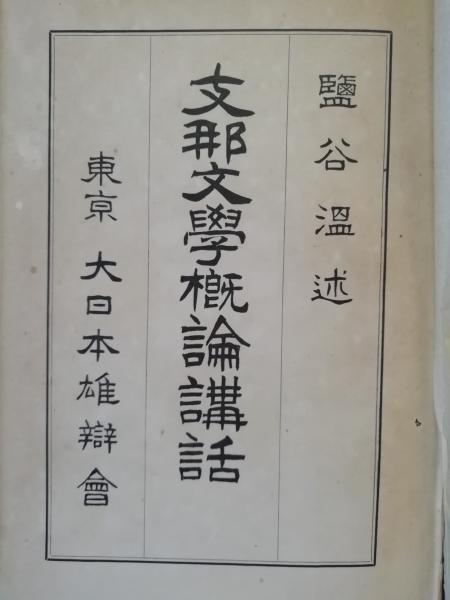 鹽谷溫述
支那文學概論講話
東京 大日本雄辯會